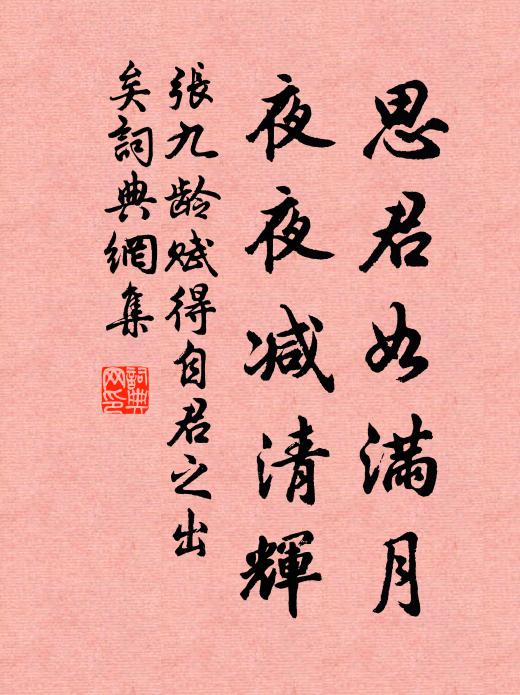 思君如满月
夜夜减清輝
張九龄赋得自君之出
矣詞典網集
詞典网印